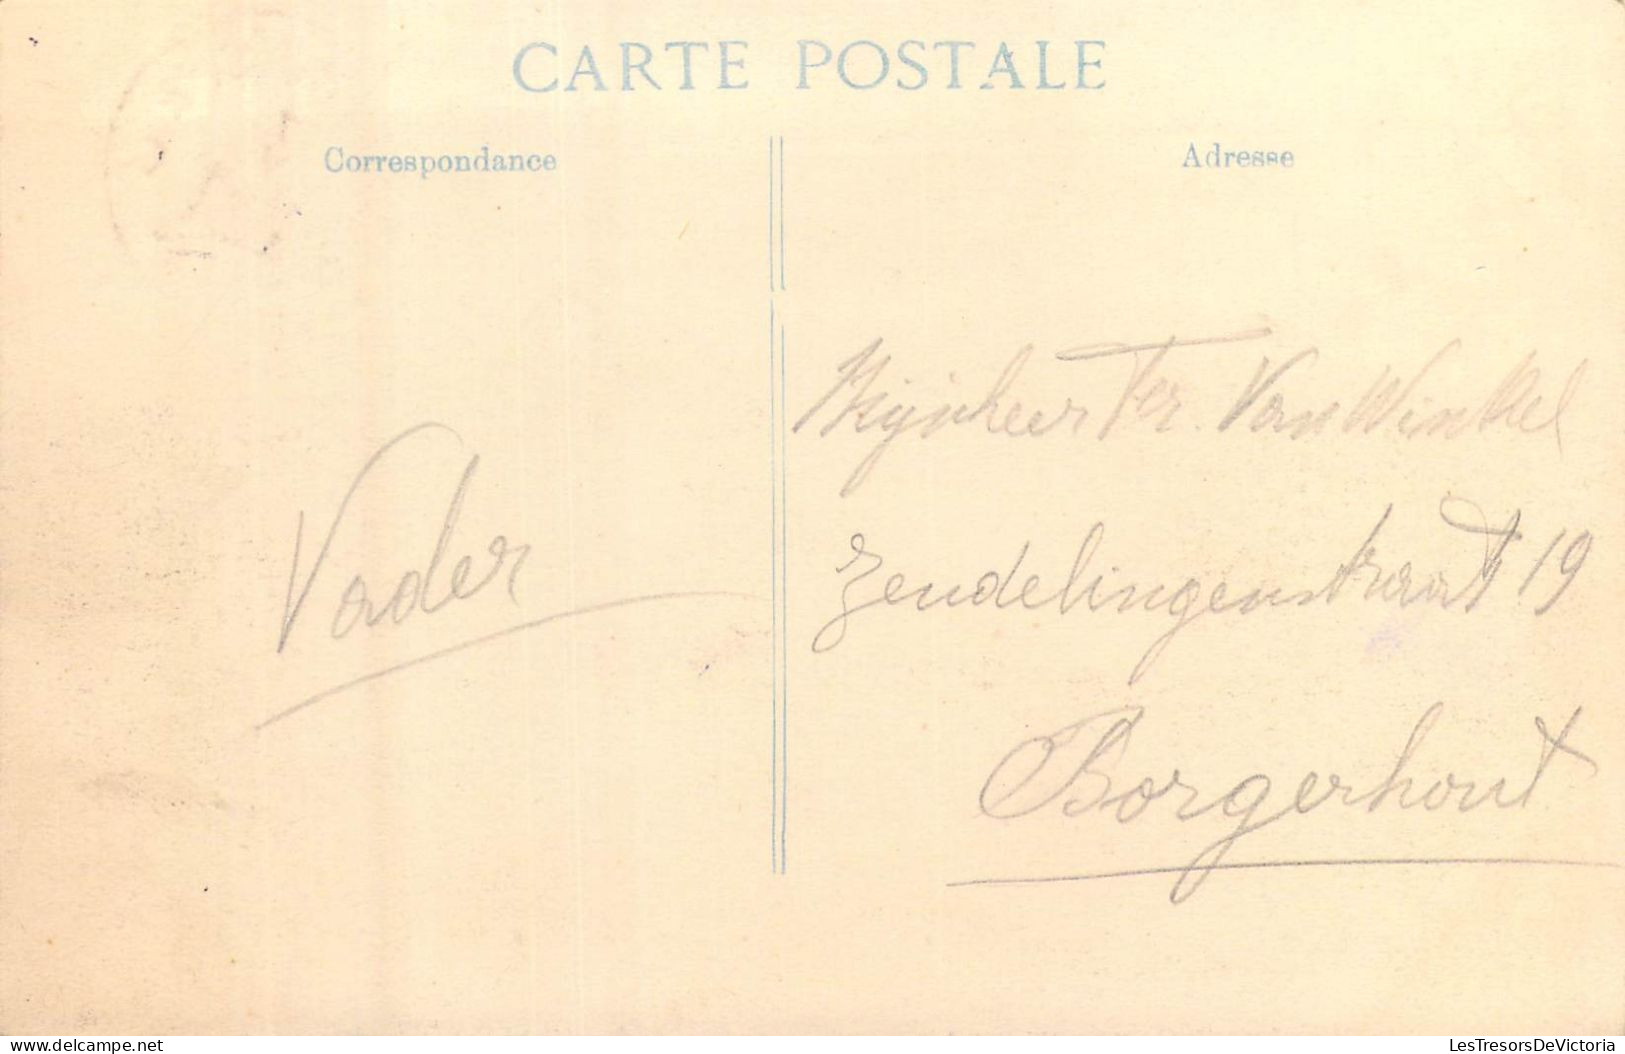 CARTE POSTALE
Correspondance
Adresse
Vader
Mijnheer Fr. Van Winkel
Zendelingenstraat 19
Borgerhout
www.delcampe.net
LesTresorsDeVictoria